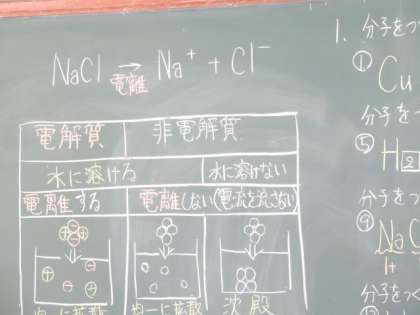 NaCl → Na⁺ + Cl⁻
電離
電解質 非電解質
水に溶ける 水に溶けない
電離する 電離しない(電流を流さない)
均一に拡散 均一に拡散 沈殿
1. 分子をつ
① Cu
分子をつ
⑤ H2
分子をつ
⑨ NaC
1+
分子をつく